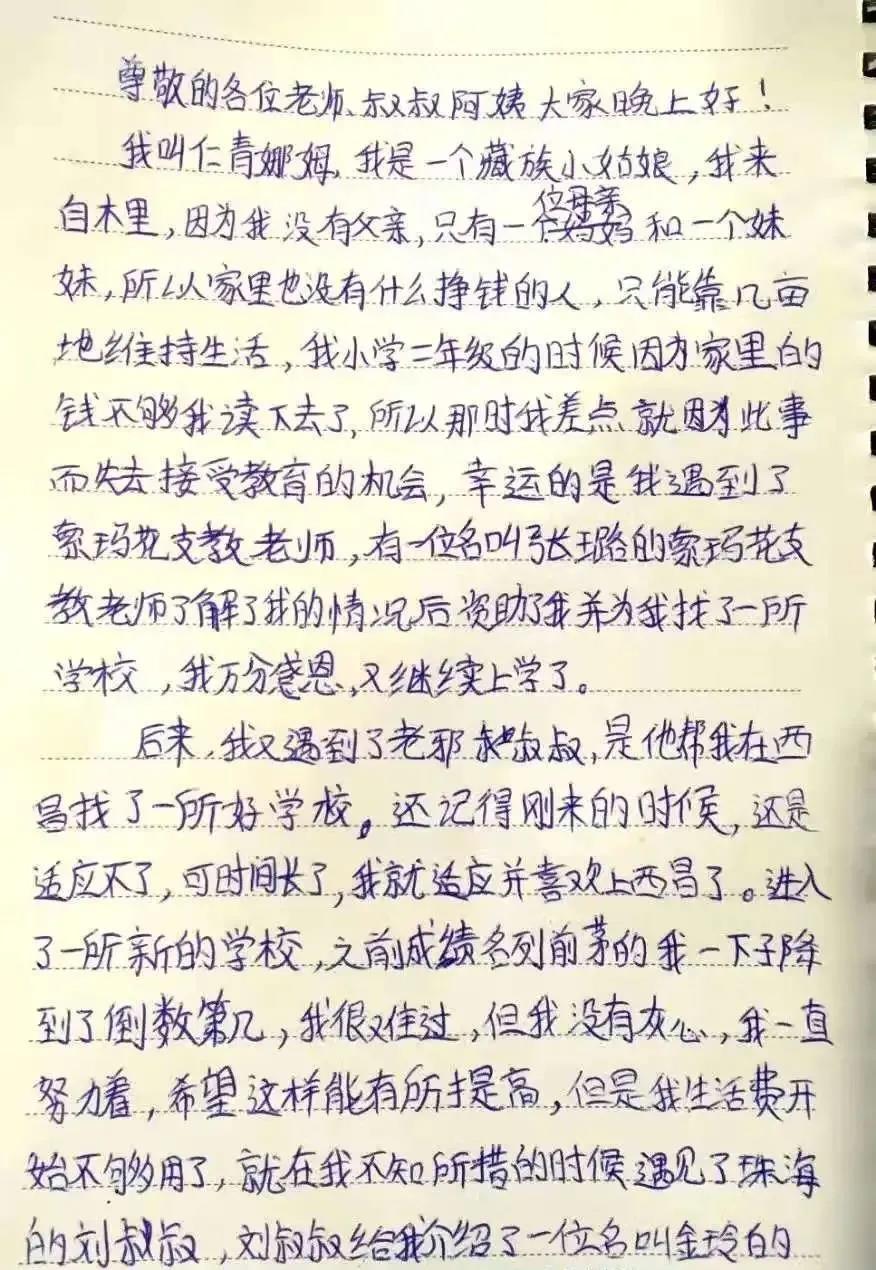 尊敬的各位老师、叔叔阿姨大家晚上好！
我叫仁青娜姆，我是一个藏族小姑娘，我来
自木里，因为我没有父亲，只有一位母亲和一个妹
妹，所以家里也没有什么挣钱的人，只能靠几亩
地维持生活，我小学二年级的时候因为家里的
钱不够我读下去了，所以那时我差点就因为此事
而失去接受教育的机会，幸运的是我遇到了
索玛花支教老师，有一位名叫张璐的索玛花支
教老师了解了我的情况后资助了我并为我找了一所
学校，我万分感恩，又继续上学了。
后来，我又遇到了老邪叔叔，是他帮我在西
昌找了一所好学校。还记得刚来的时候，还是
适应不了，可时间长了，我就适应并喜欢上西昌了。进入
了一所新的学校，之前成绩名列前茅的我一下子降
到了倒数第几，我很难过，但我没有灰心，我一直
努力着，希望这样能有所提高，但是我生活费开
始不够用了，就在我不知所措的时候遇见了珠海
的刘叔叔，刘叔叔给我介绍了一位名叫金玲的